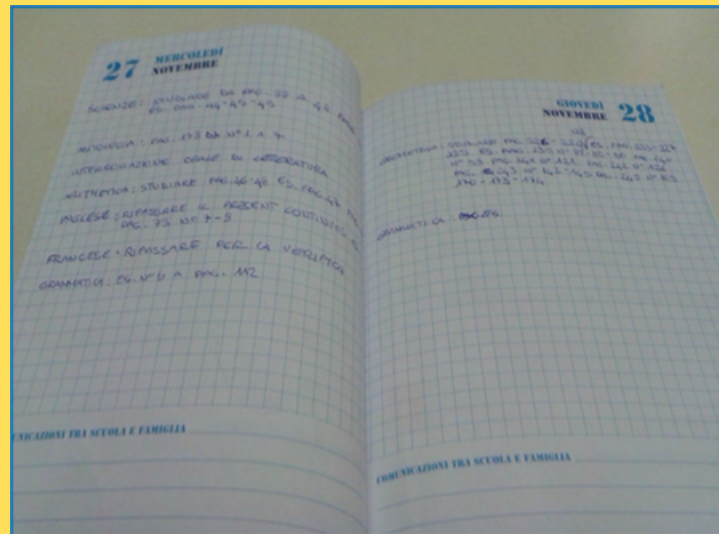 27 MERCOLEDÌ
NOVEMBRE
SCIENZE: STUDIARE DA PAG. 38 A 42
ES. PAG. 44-45-46
ANTOLOGIA: PAG. 173 DA N° 1 A 7
INTERROGAZIONE ORALE DI LETTERATURA
ARITMETICA: STUDIARE PAG. 46-48 ES. PAG. 47
INGLESE: RIPASSARE IL PRESENT CONTINUOUS
PAG. 75 N° 7-8
FRANCESE: RIPASSARE PER LA VERIFICA
GRAMMATICA: ES. N° 6 A PAG. 112
UNICAZIONI TRA SCUOLA E FAMIGLIA
GIOVEDÌ
NOVEMBRE 28
GEOMETRIA: STUDIARE PAG. ES. PAG.
ES. PAG. 235 N° PAG. 240
N° 53 PAG. 241 N° 121 PAG. 242 N° 126
PAG. 243 N° 142-145 PAG. 245 N° 165
170-173-174
GRAMMATICA:
COMUNICAZIONI TRA SCUOLA E FAMIGLIA